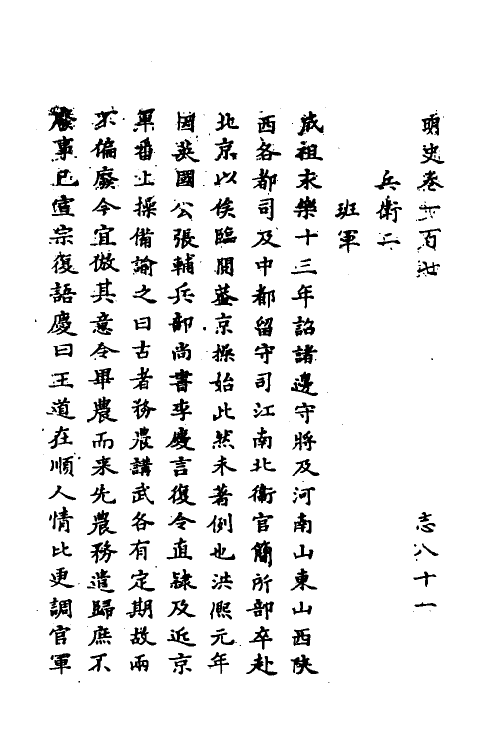 明史卷一百廿 志八十一
兵衛二
班軍
成祖永樂十三年詔諸邊守將及河南山東山西陝
西各都司及中都留守司江南北衛官簡所部卒赴
北京以俟臨閱蓋京操始此然未著例也洪熙元年
因英國公張輔兵部尚書李慶言復令直隸及近京
軍番上操備諭之曰古者務農講武各有定期故兩
不偏廢今宜倣其意令畢農而来先農務遣歸庶不
廢事已宣宗復語慶曰王道在順人情比更調官軍